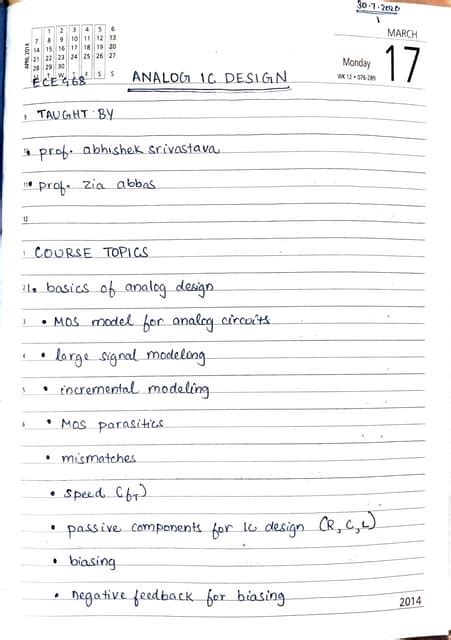 30-7-2020
MARCH
17
Monday
WK 12 • 076-289
APRIL 2014
1 2 3 4 5 6
7 8 9 10 11 12 13
14 15 16 17 18 19 20
21 22 23 24 25 26 27
28 29 30
M T W T F S S
ECE468
ANALOG IC DESIGN
9 TAUGHT BY
prof. abhishek srivastava
prof. zia abbas
12
1 COURSE TOPICS
1. basics of analog design
3 • MOS model for analog circuits
4 • large signal modelong
5 • incremental modeling
6 • MOS parasitics
• mismatches
• speed (fT)
• passive components for IC design (R, C, L)
• biasing
• negative feedback for biasing
2014